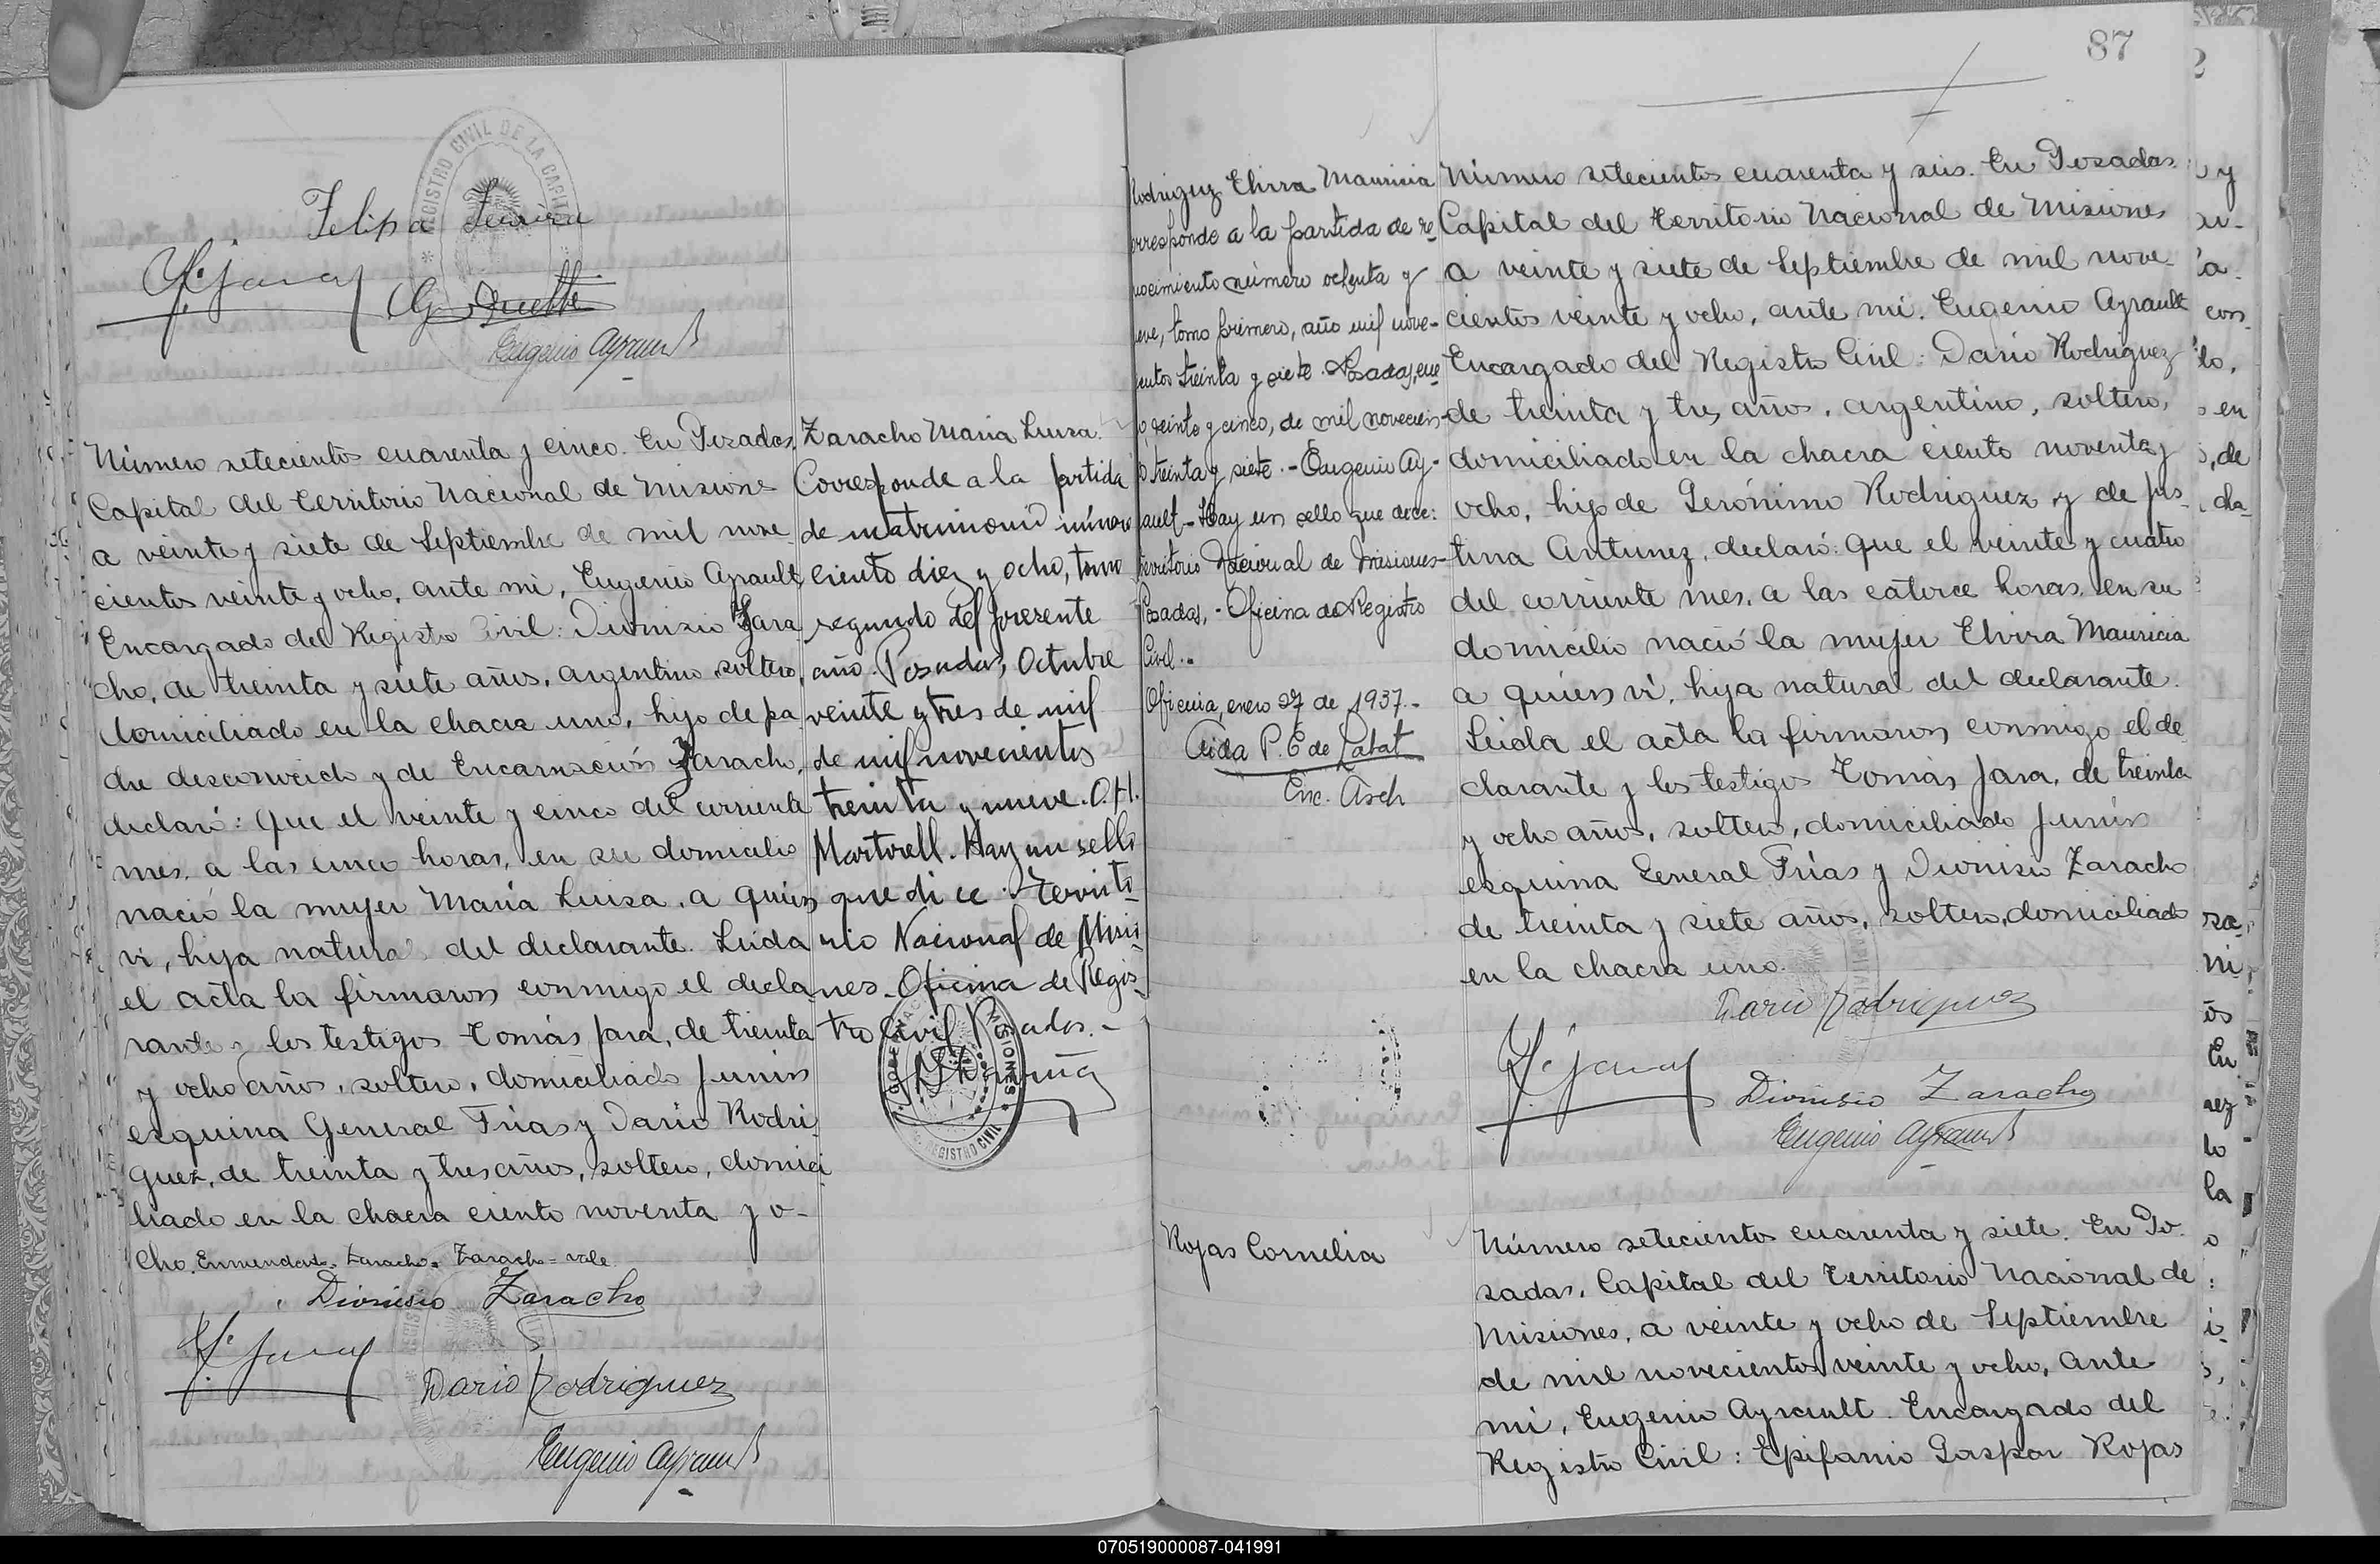 Felipa
Eugenio Ayrault
Número setecientos cuarenta y cinco. En Posadas,
Capital del Territorio Nacional de Misiones
a veinte y siete de Septiembre de mil nove-
cientos veinte y ocho, ante mi, Eugenio Ayrault
Encargado del Registro Civil: Dionisio Zara
cho, de treinta y siete años, argentino, soltero,
domiciliado en la chacra uno, hijo de pa
dre desconocido y de Encarnación Zaracho,
declaró: Que el veinte y cinco del corriente
mes, a las cinco horas, en su domicilio
nació la mujer María Luisa, a quien
vi, hija natural del declarante. Leida
el acta la firmaron conmigo el decla
rante y los testigos Tomás Jara, de treinta
y ocho años, soltero, domiciliado Junin
esquina General Frias y Dario Rodri
guez, de treinta y tres años, soltero, domici
liado en la chacra ciento noventa y o-
cho. Enmendado. Zaracho = Zaracho = vale.
Dionisio Zaracho
Dario Rodriguez
Eugenio Ayrault
Zaracho Maria Luisa.
Corresponde a la partida
de matrimonio número
ciento diez y ocho, tomo
segundo del presente
año. Posadas, Octubre
veinte y tres de mil
de mil novecientos
treinta y nueve. O.H.
Martorell. Hay un sello
que dice: Territo-
rio Nacional de Misio-
nes. Oficina de Regis-
tro Civil Posadas. -
MISIONES
REGISTRO CIVIL
87
Rodriguez Elvira Mauricia
orresponde a la partida de re
nocimiento número ochenta y
ueve, tomo primero, año mil nove-
ientos treinta y siete. Posadas, ene
o veinte y cinco, de mil novecien-
o treinta y siete. - Eugenio Ay-
rault - Hay un sello que dice:
Territorio Nacional de Misiones-
Posadas, - Oficina de Registro
Civil. -
Oficina, enero 27 de 1937. -
Aida P. E de Labat
Enc. Arch
Número setecientos cuarenta y seis. En Posadas
Capital del Territorio Nacional de Misiones
a veinte y siete de Septiembre de mil nove-
cientos veinte y ocho, ante mi, Eugenio Ayrault
Encargado del Registro Civil: Dario Rodriguez
de treinta y tres años, argentino, soltero,
domiciliado en la chacra ciento noventa y
ocho, hijo de Gerónimo Rodriguez y de Jus-
tina Antunez, declaró: Que el veinte y cuatro
del corriente mes, a las catorce horas, en su
domicilio nació la mujer Elvira Mauricia
a quien vi, hija natural del declarante.
Leida el acta la firmaron conmigo el de
clarante y los testigos Tomás Jara, de treinta
y ocho años, soltero, domiciliado Junin
esquina General Frias y Dionisio Zaracho
de treinta y siete años, soltero, domiciliado
en la chacra uno.
Dario Rodriguez
Dionisio Zaracho
Eugenio Ayrault
Rojas Cornelia
Número setecientos cuarenta y siete. En Po-
sadas, Capital del Territorio Nacional de
Misiones, a veinte y ocho de Septiembre
de mil novecientos veinte y ocho, ante
mi, Eugenio Ayrault. Encargado del
Registro Civil: Epifanio Gaspar Rojas
070519000087-041991